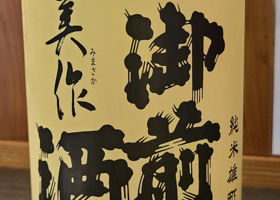 純米雄町
御前
酒
美作
みまさか